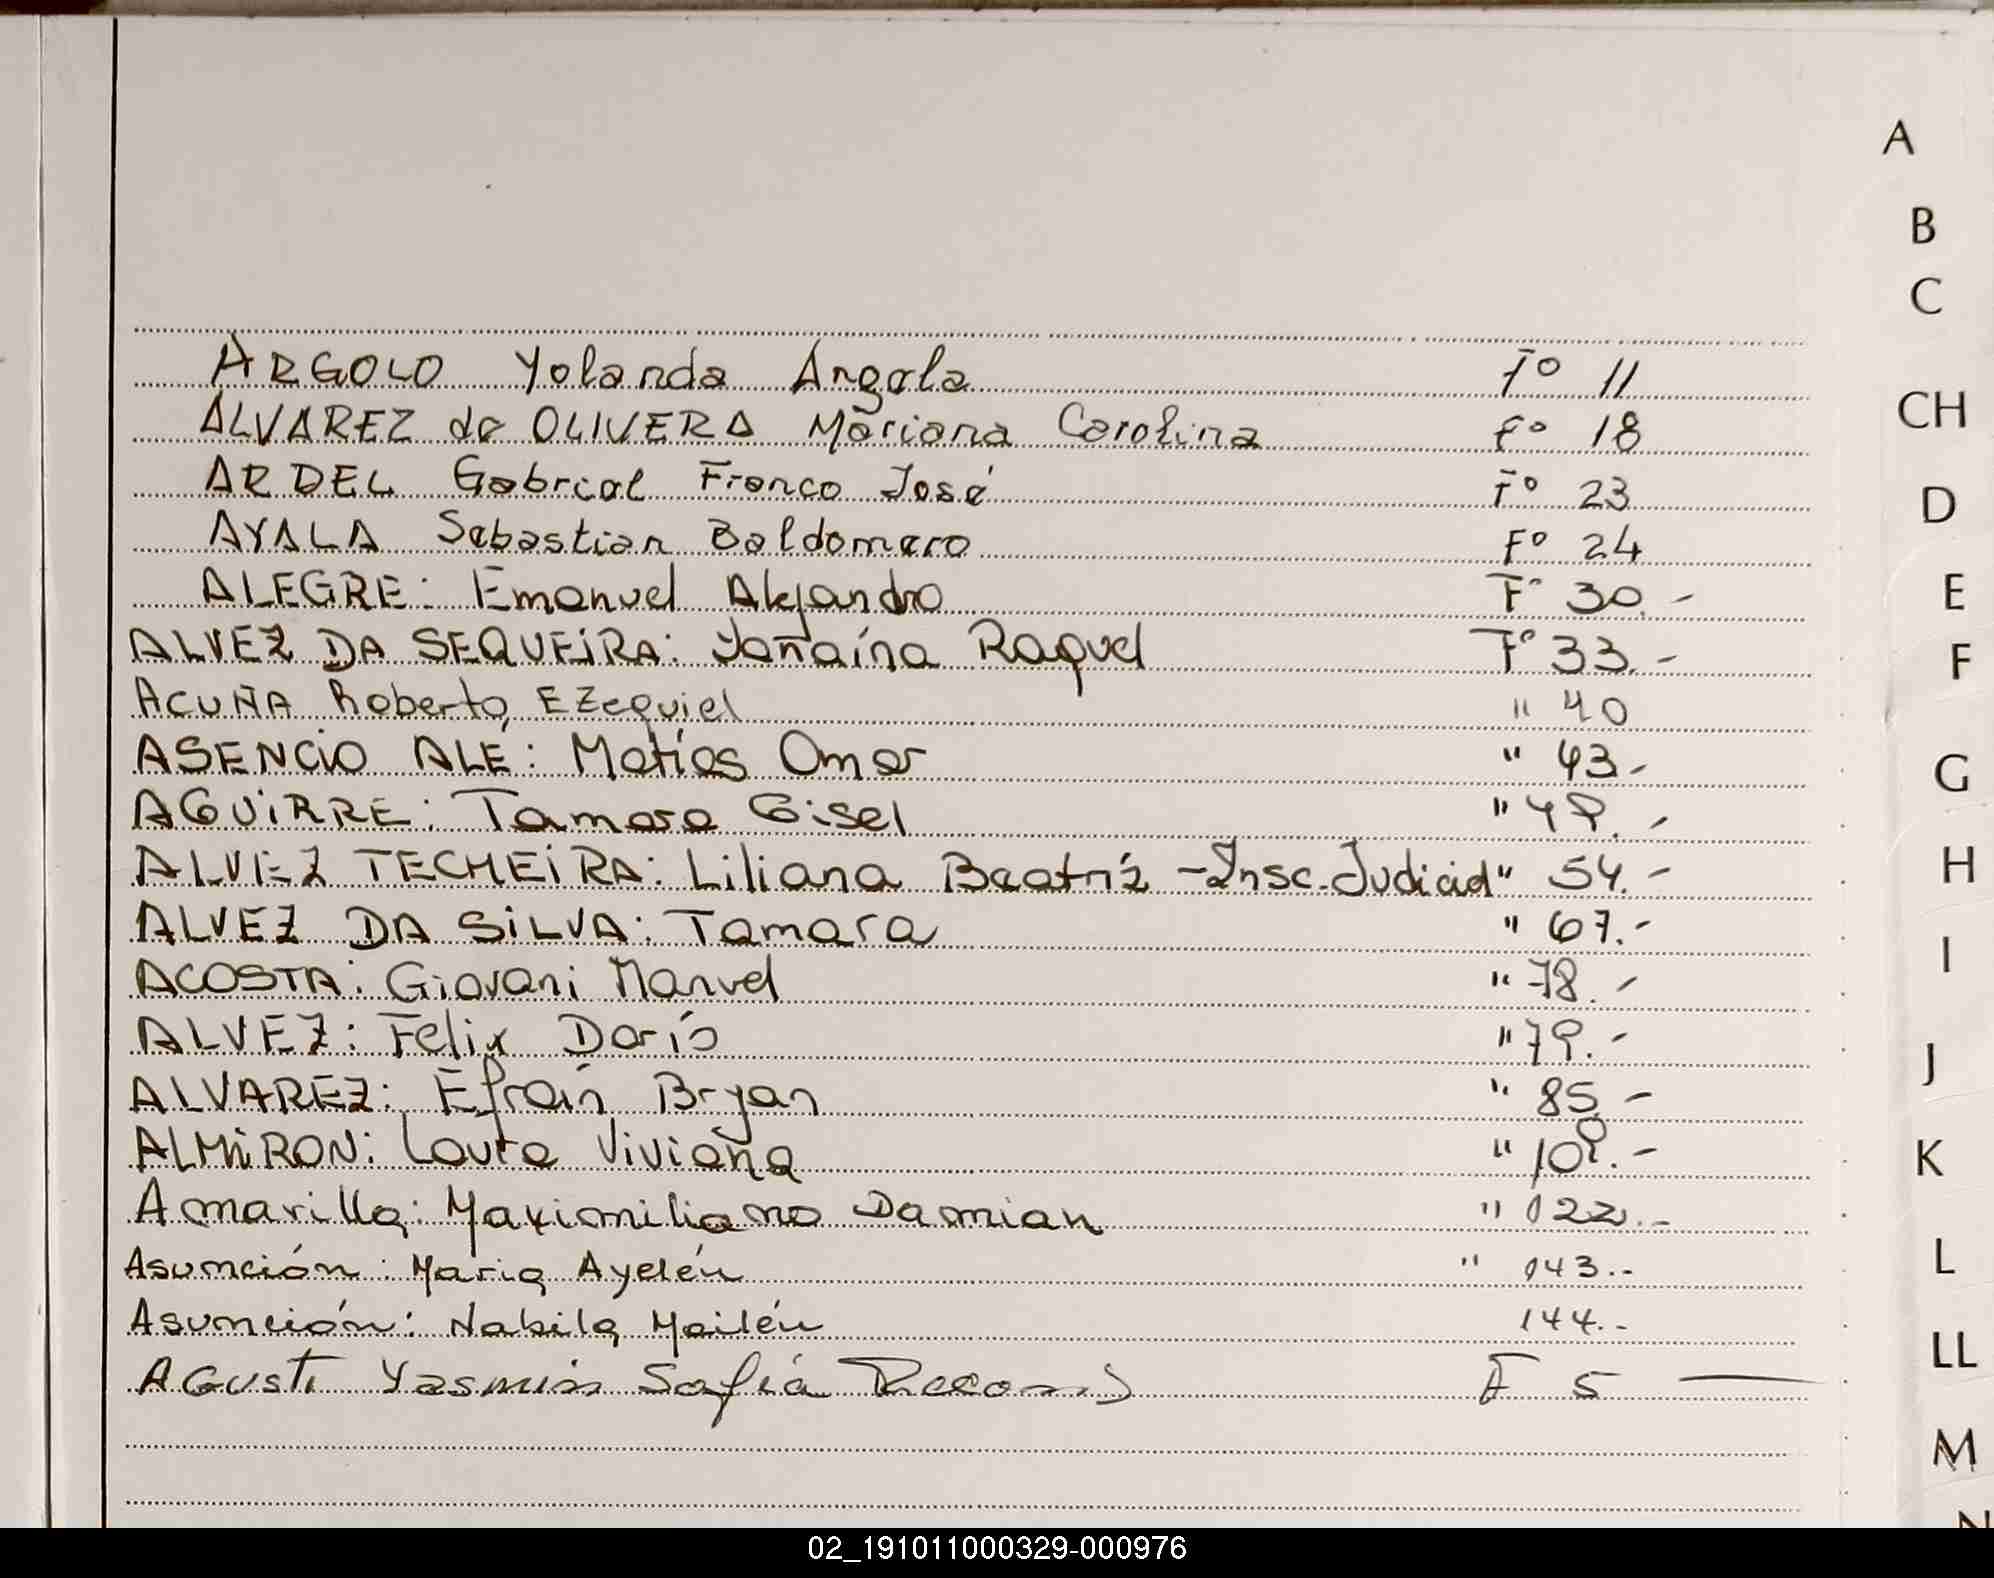 ARGOLO Yolanda Angela F° 11
ALVAREZ de OLIVERA Mariana Carolina F° 18
ARDEL Gabriel Franco José F° 23
AYALA Sebastian Baldomero F° 24
ALEGRE: Emanuel Alejandro F° 30.-
ALVEZ DA SEQUEIRA: Raquel F° 33.-
ACUÑA Roberto Ezequiel " 40
ASENCIO ALE: Matías Omar " 43.-
AGUIRRE: Tamara Gisel " 49.-
ALVEZ TECHEIRA: Liliana Beatríz - Insc. Judicial " 54.-
ALVEZ DA SILVA: Tamara " 67.-
ACOSTA: Giovani Manuel " 78.-
ALVEZ: Felix Darío " 79.-
ALVAREZ: Efraín Bryan " 85.-
ALMIRON: Laura Viviana " 109.-
Amarilla: Maximiliano Damian " 122.-
Asunción: Maria Ayelén " 143.-
Asunción: Nabila Mailén 144.-
AGusti Yasmin Sofía F 5
A
B
C
CH
D
E
F
G
H
I
J
K
L
LL
M
N
02_191011000329-000976